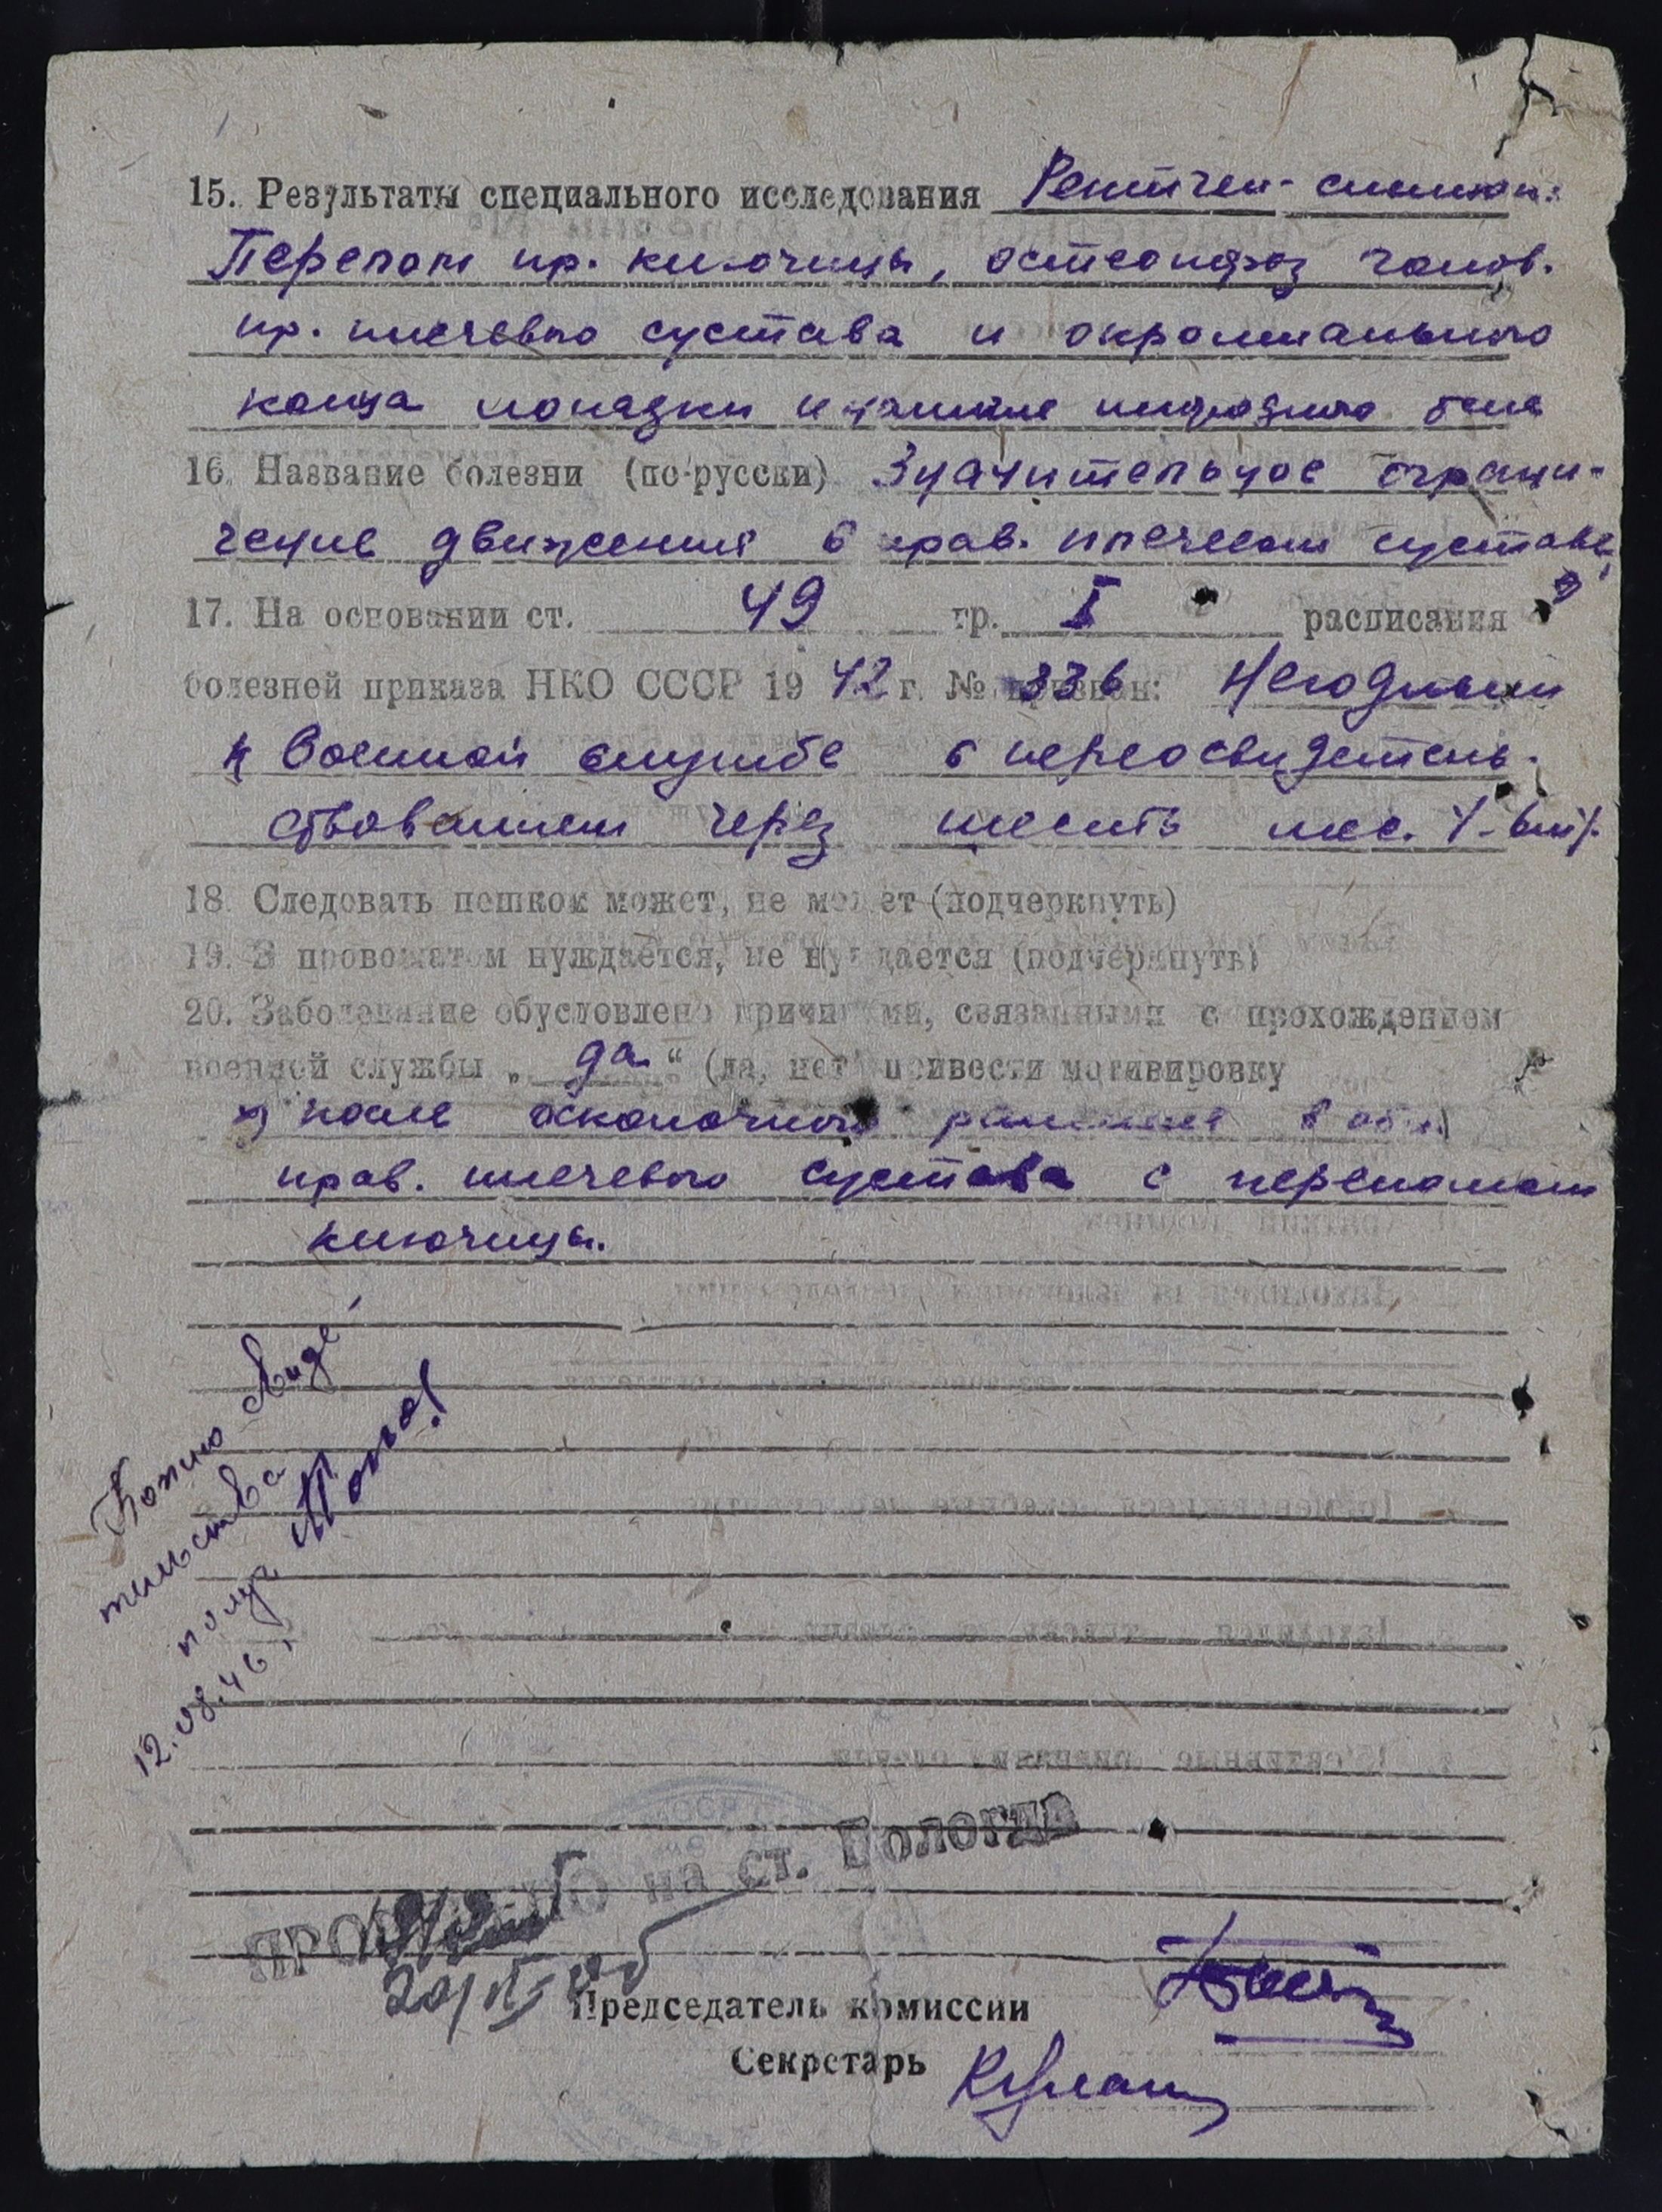 15. Результаты специального исследования Рентген-снимок:
Перелом пр. ключицы, остеопороз голов.
пр. плечевого сустава и окромиального
конца лопадки
16. Название болезни (по-русски) Значительное ограни-
чение движения в прав. плечевом суставе
17. На основании ст. 49 гр. I расписания
болезней приказа НКО СССР 1942 г. № 336 признан: Негодным
к военной службе с переосвидетель-
ствованием через шесть мес.
18. Следовать пешком может, не может (подчеркнуть)
19. В провожатом нуждается, не нуждается (подчеркнуть)
20. Заболевание обусловлено причинами, связанными с прохождением
военной службы „да“ (да, нет) привести мотивировку
х) после осколочного ранения в обл.
прав. плечевого сустава с переломом
ключицы.
Копию свиде
тельства
получ
12.08.46,
на ст. Вологда
Председатель комиссии
Секретарь